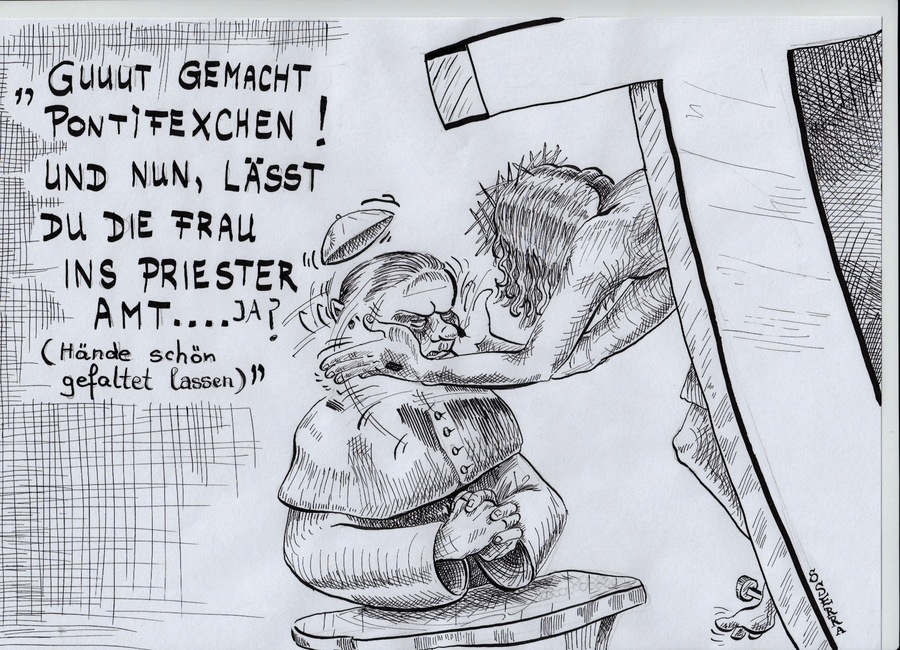 „GUUUT GEMACHT
PONTIFEXCHEN !
UND NUN, LÄSST
DU DIE FRAU
INS PRIESTER
AMT....JA?
(Hände schön
gefaltet lassen)”